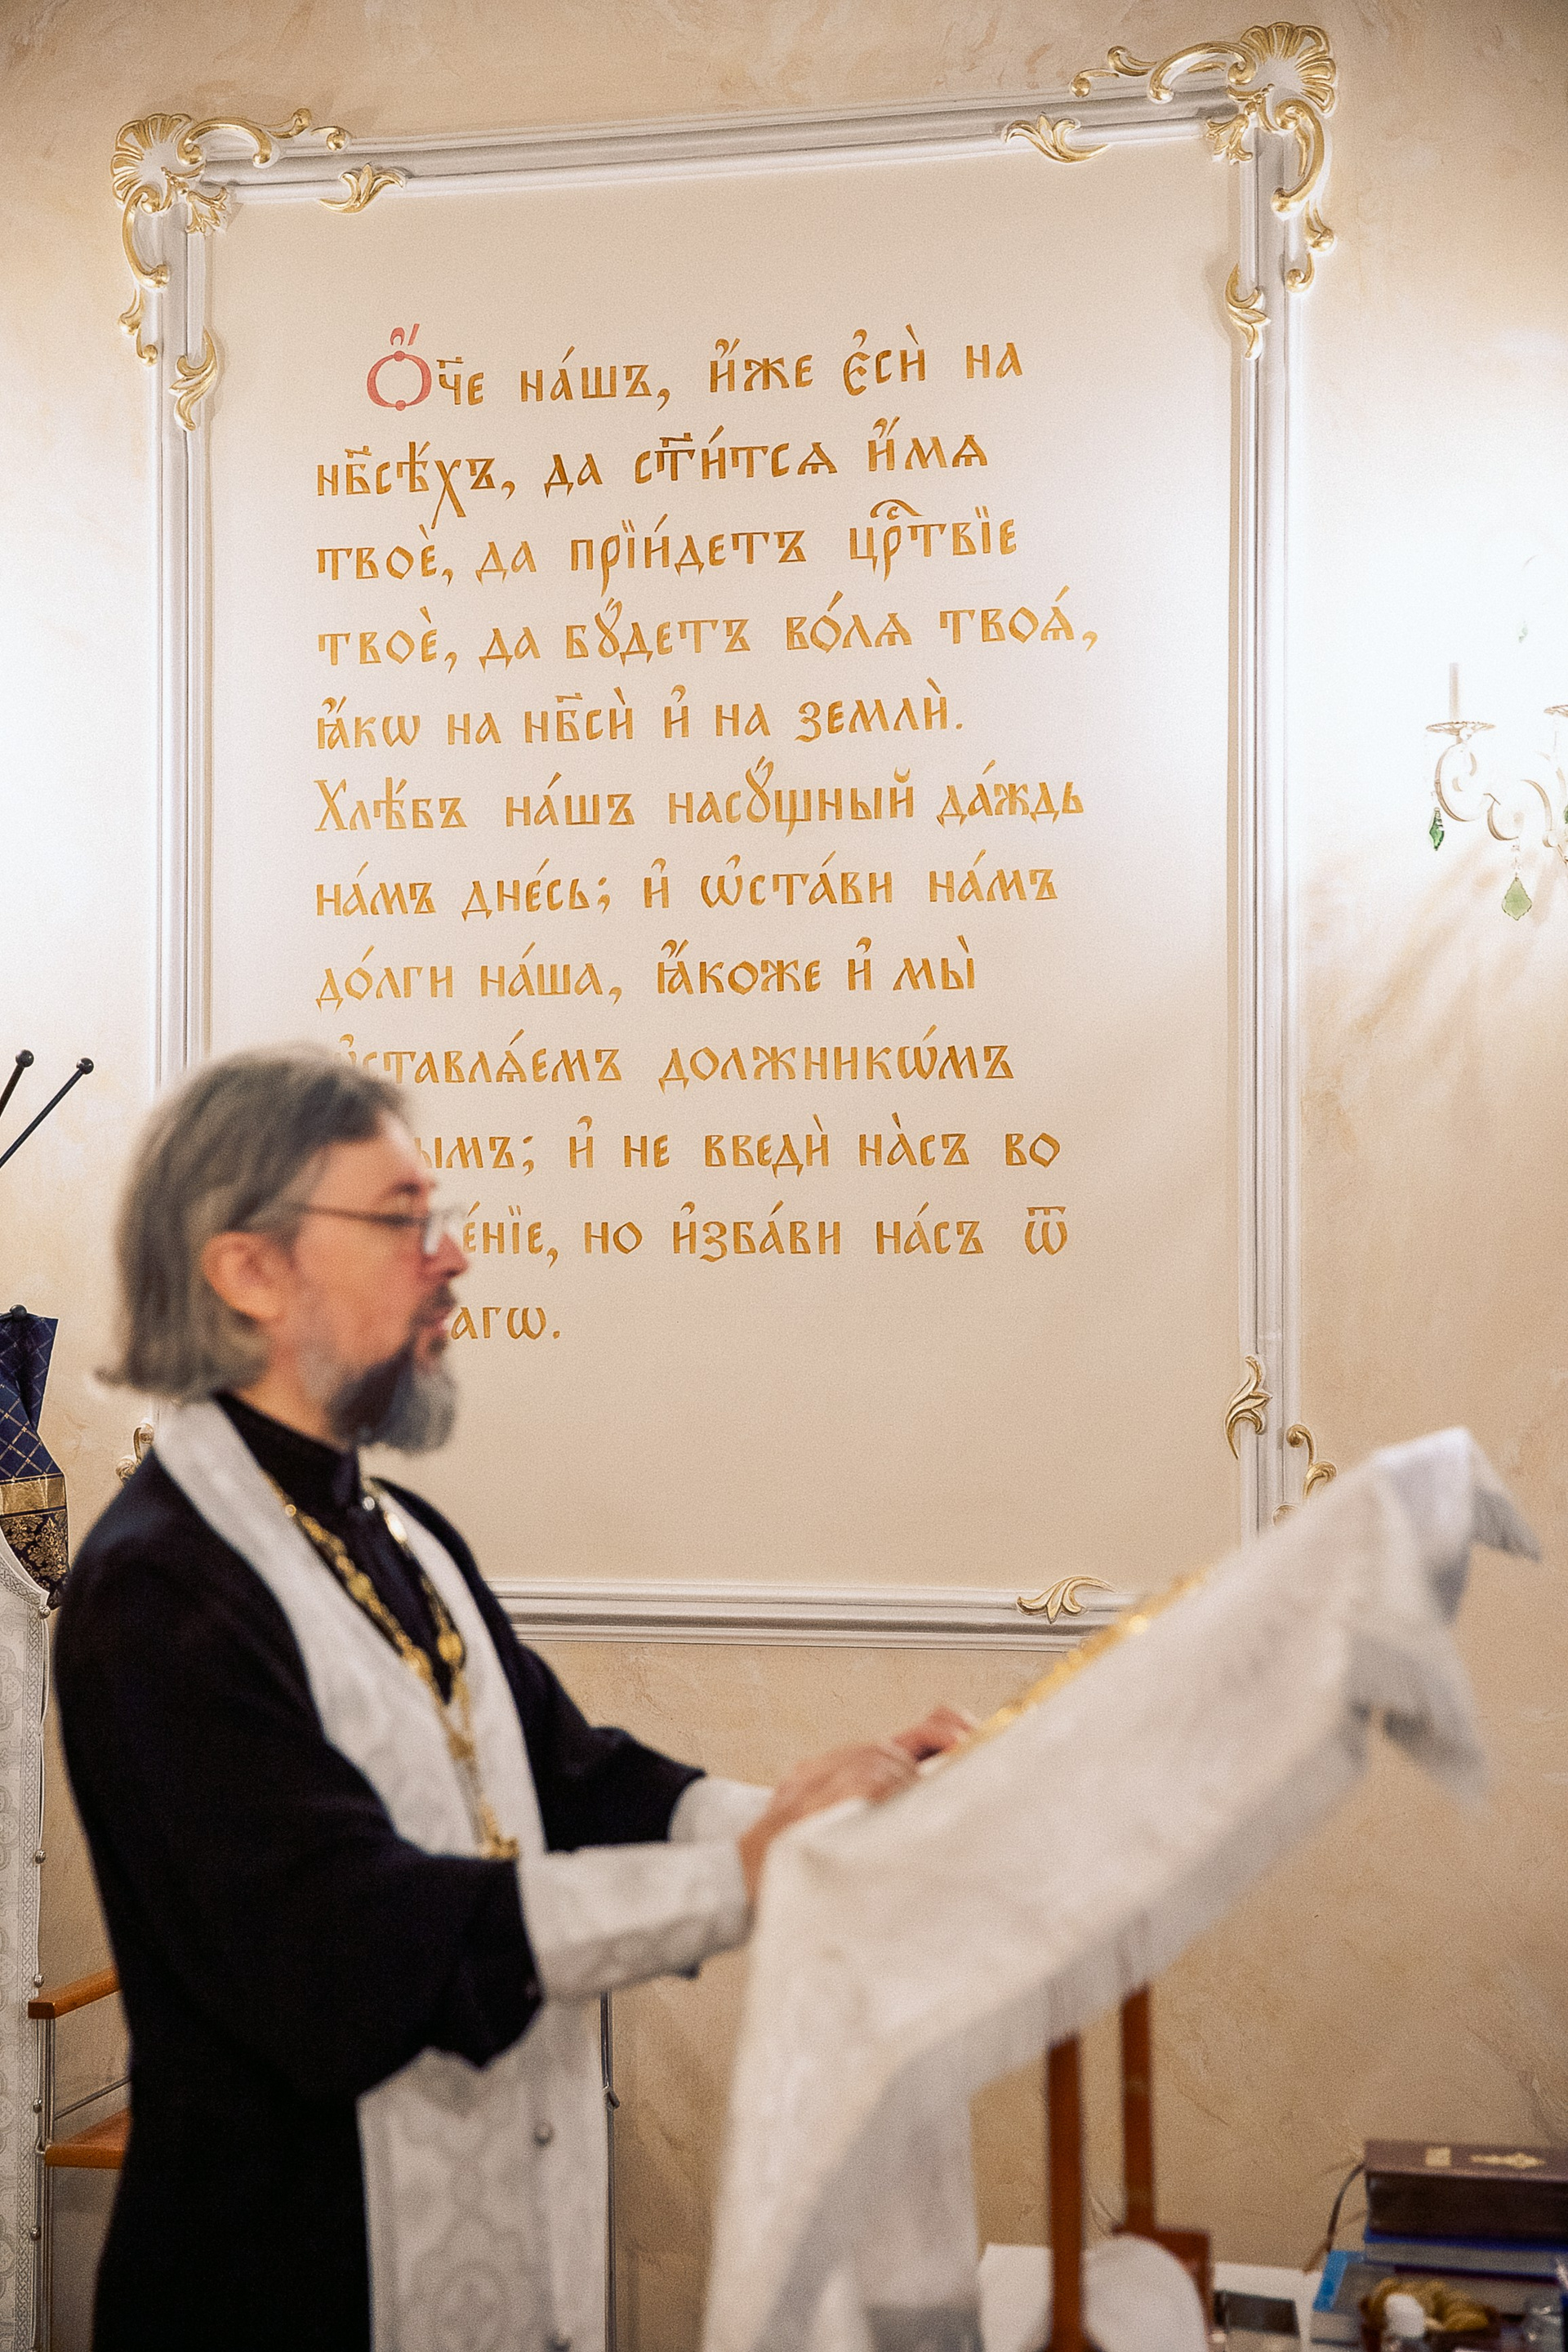 Ѻ҆́ч҃е на́шъ, и҆́же є҆сѝ на
нб҃сѣ́хъ, да ст҃и́тсѧ и҆́мѧ
твоѐ, да прїи́детъ цр҇твїе
твоѐ, да бꙋ́детъ во́лѧ твоѧ́,
ꙗ҆́кѡ на нб҃сѝ и҆ на землѝ.
Хлѣ́бъ на́шъ насꙋ́щный да́ждь
на́мъ дне́сь; и҆ ѡ҆ста́ви на́мъ
до́лги на́ша, ꙗ҆́коже и҆ мы̀
ѡ҆ставлѧ́емъ должникѡ́мъ
ымъ; и҆ не введѝ на̀съ во
е́нїе, но и҆зба́ви на́съ ѿ
агѡ.